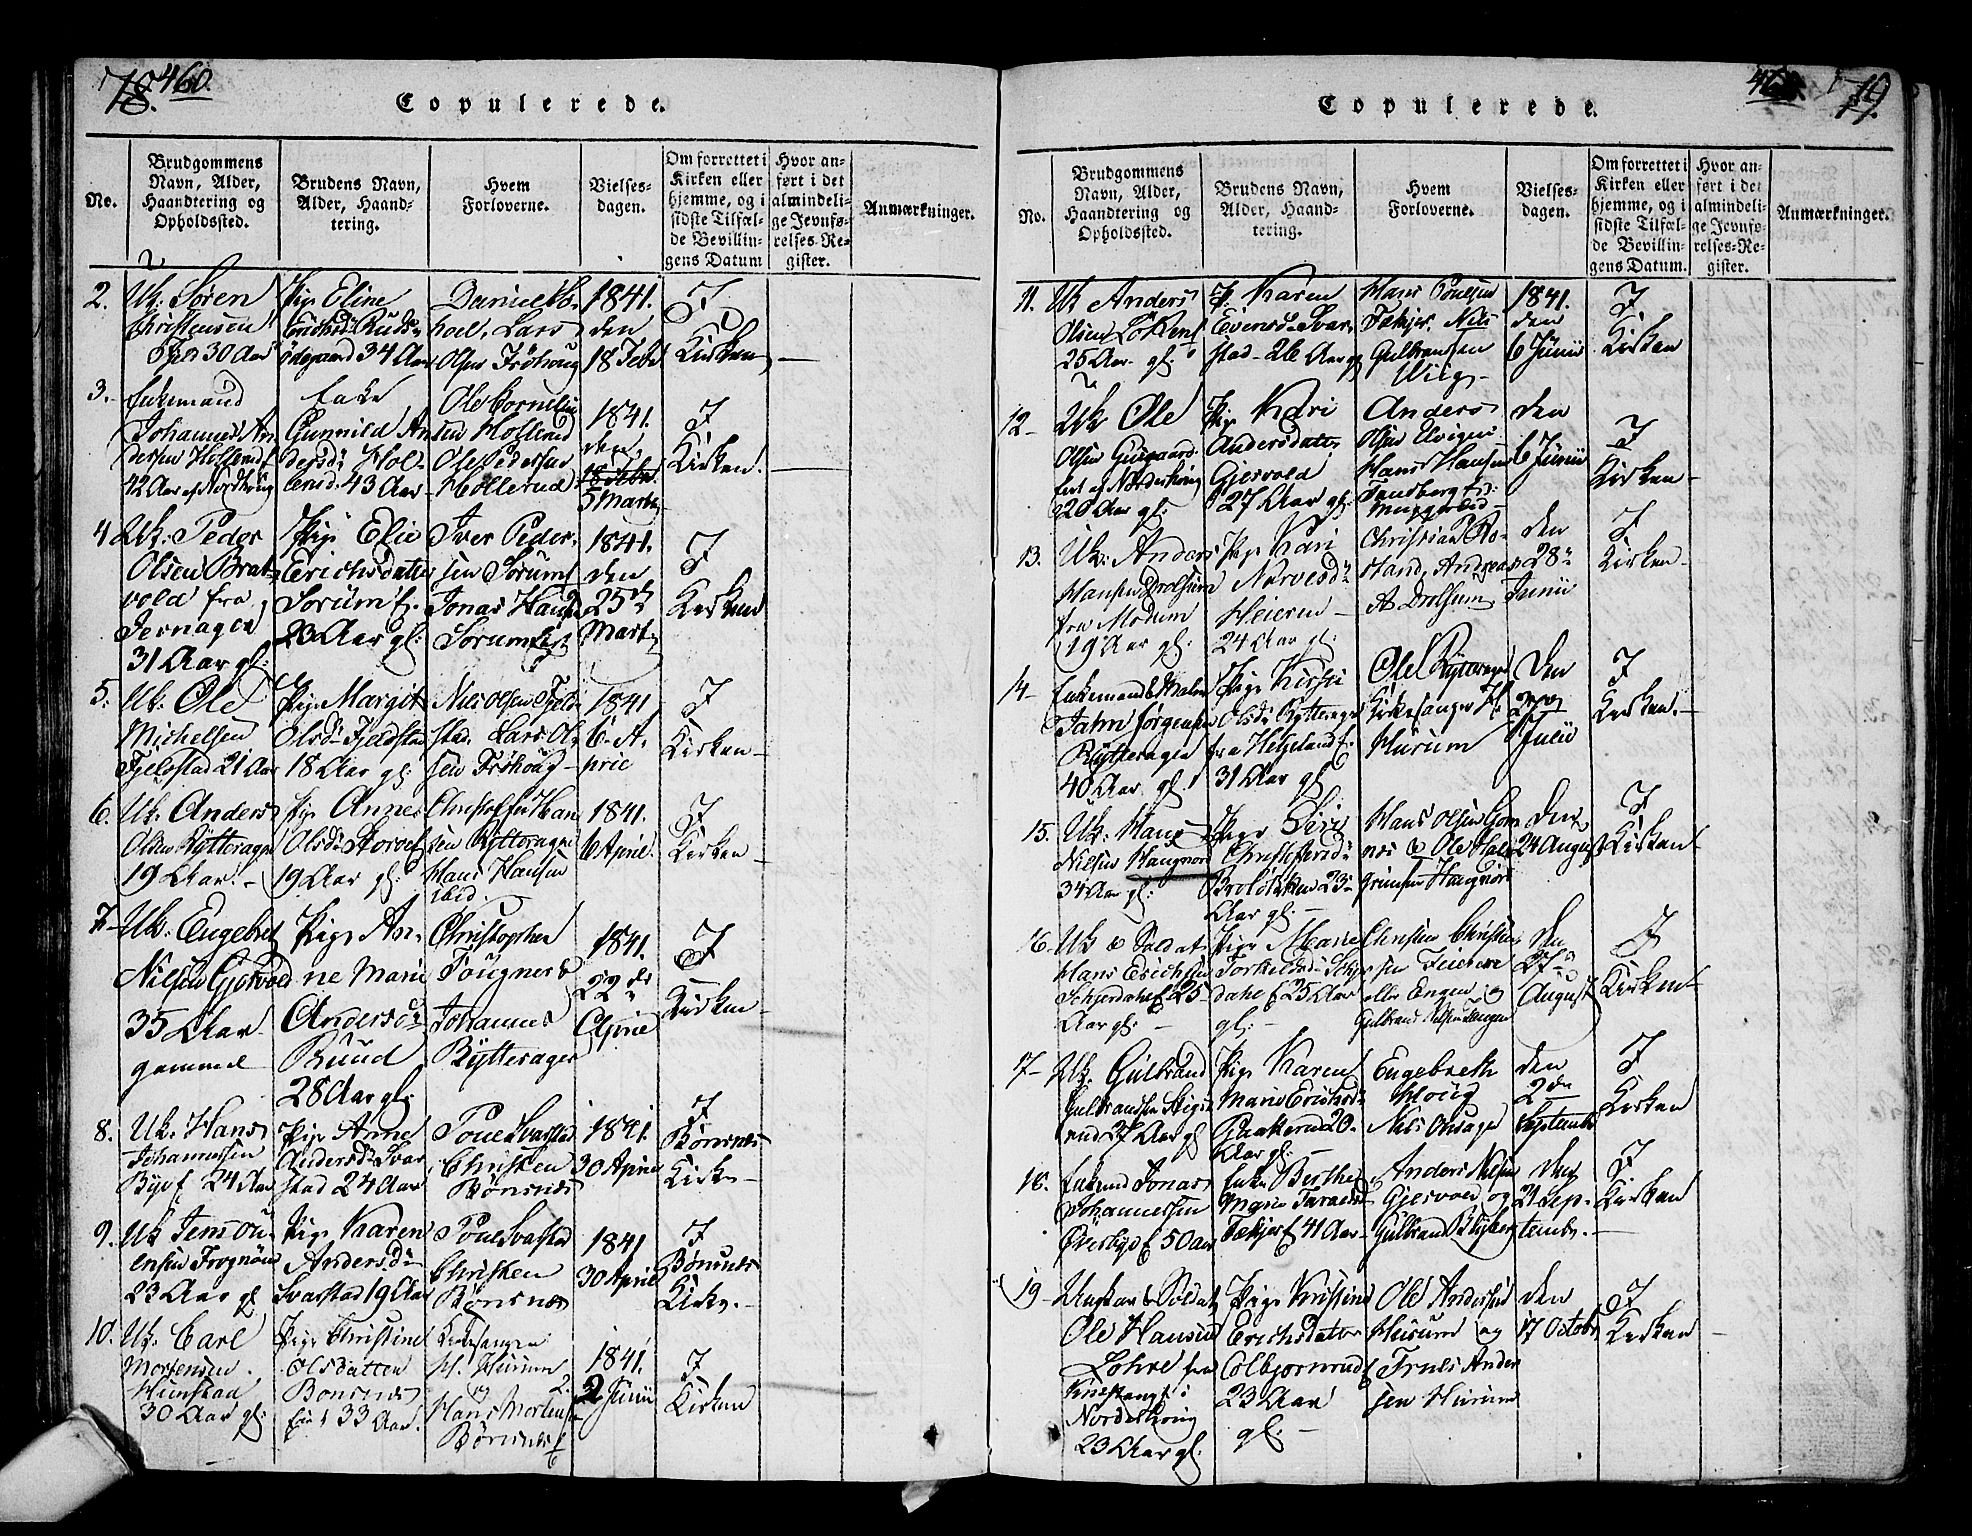 78. 460.
Copulerede.
No.
Brudgommens Navn, Alder, Haandtering og Opholdssted.
Brudens Navn, Alder, Haandtering.
Hvem Forloverne.
Vielsesdagen.
Om forrettet i Kirken eller hjemme, og i sidste Tilfælde Bevillingens Datum
Hvor anført i det almindelige Jevnførelses-Register.
Anmærkninger.
2.
Uk. Søren
Christensen
30 Aar
Pige Eline
Erichsd:
34 Aar
Lars
Olsen Frøhoug
1841.
den
18 Febr
I
Kirken
3.
Enkemand
Johannes An
dersen Hollerud
42 Aar af Nordrhug
Enke
Gunnild An
dersd: Hol
lerud 43 Aar
Ole Corneliu
sen Hollerud
Ole Pedersen
Hollerud
1841.
den
18 Febr.
5 Marts
I
Kirken.
4
Uk. Peder
Olsen Brat
vold fra
Jevnager
31 Aar gl:
Pige Elie
Erichsdatter
Sorum f.
23 Aar gl:
Iver Peder
sen Sorum
Jonas Hans
Sorum
1841.
den
25de
Marts
I
Kirken
5.
Uk. Ole
Michelsen
Fjeldstad 21 Aar
Pige Margit
Olsd: Fjeldstad
18 Aar gl:
Niels Olsen Fjeld
stad. Lars Ol
sen Frøhoug
1841
6 A
pril
I
Kirken
6.
Uk. Anders
Olsen Rytterager
19 Aar.
Pige Anne
Olsd:
19 Aar gl:
Christoffer Han
sen Rytterager
Hans Hansen
ibid.
1841.
6 April.
I
Kirken
7
Uk. Engebret
Nielsen Gjesvold
35 Aar
gammel
Pige An
ne Marie
Andersd:
Ruud
28 Aar gl:
Christopher
Tougner &
Johannes
Rytterager
1841.
22de
April
I
Kirken
8.
Uk. Hans
Johannesen
Bye f. 24 Aar
Pige Anne
Andersd: Svar
stad 24 Aar
Poul Svarstad
Christen
Bønsnes
1841.
30 April
I
Bønsnes
Kirke
9.
Uk Jens Ou
ensen Frognøen
23 Aar gl
Pige Karen
Andersd:
Svarstad 19 Aar
Poul Svarstad
Christen
Bønsnes
1841
30 April
I
Bønsnes
Kirke.
10.
Uk. Carl
Mortensen
Hunstad
30 Aar gl:
Pige Christine
Olsdatter
Bønsnes
33 Aar.
Kirkesanger
H. Hurum
og
Hans Mortensen
Bønsnes
1841.
2 Junii
I
Kirken
79.
Copulerede.
No.
Brudgommens Navn, Alder, Haandtering og Opholdssted.
Brudens Navn, Alder, Haandtering.
Hvem Forloverne.
Vielsesdagen.
Om forrettet i Kirken eller hjemme, og i sidste Tilfælde Bevillingens Datum.
Hvor anført i det almindelige Jevnførelses-Register.
Anmærkninger.
11.
Uk Anders
Olsen Løken
25 Aar gl:
P. Karen
Evensd: Svar
stad 26 Aar g
Hans Poulsen
Fækjer. Niels
Gulbransen
Wiig
1841.
den
6 Junii
I
Kirken
12
Uk Ole
Olsen
af Norderhoug
20 Aar gl:
Pige Kari
Andersdatter
Gjesvold
27 Aar gl:
Anders
Olsen Elvigen
Hans Hansen
Tandberg
den
6 Junii
I
Kirken
13.
Uk. Anders
Hansen Drolsum
fra Modum
19 Aar gl:
Pige Kari
Narvesd:
Heieren
24 Aar gl:
Christian Ro
Hand, Andreas
A Drolsum
den
28
Junii
I
Kirken
14
Enkemand &
Jahn Jørgensen
Rytterager
40 Aar gl.
Pige Kirsti
Olsd: Rytterager
fra Helgeland f.
31 Aar gl
Ole Rytterager
Kirkesanger H.
Hurum
den
27
Julii
I
Kirken.
15.
Uk. Hans
Nielsen Haugnor
34 Aar gl:
Pige Siri
Christofersd:
23
Aar gl:
Hans Olsen Gom
nes & Ole Hal
grimsen Haugnor
den
24 August
I
Kirken
16.
Uk & Soldat
Hans Erichsen
Schjerdahl f. 25
Aar gl:
Pige Marie
Torkelsd: Schjer
dahl f. 25 Aar
gl:
Christen Christen
sen
eller Engen og
Gulbrand
den
27
August
I
Kirken
17
Uk. Gulbrand
Gulbransen
rud 27 Aar gl
Pige Karen
Marie Erichsd:
20
Aar gl:
Engebreth
Moug
Niels
den
2den
Septembr
I
Kirken
18.
Enkemd Jonas
Johannessen
Øverbye f. 50 Aar
Enke Berthe
Marie
Fækjer f. 41 Aar
Anders Nielsen
Gjesvold og
Gulbrand
den
21 Sep
tembr.
I
Kirken
19
Ungkar & Soldat
Ole Hansen
Lohre fra
i
Norderhoug
23 Aar gl:
Pige Kristine
Erichsdatter
Colbjørnrud
23 Aar
gl:
Ole Andersen
Hurum og
Ander
sen Hurum
den
17 Octobr
I
Kirken